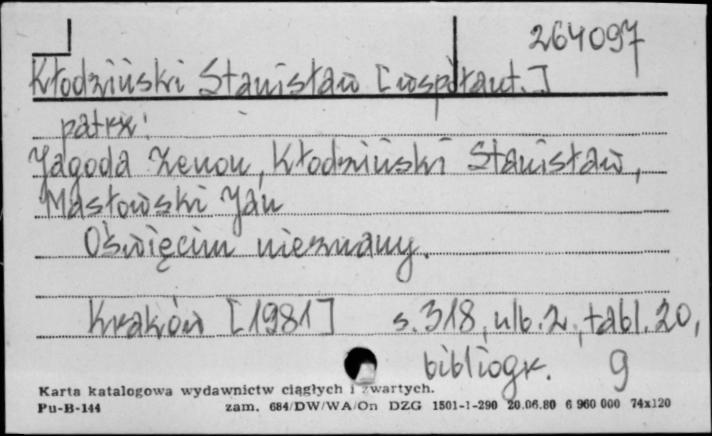 264097
Kłodziński Stanisław [współaut.]
patrz:
Jagoda Zenon, Kłodziński Stanisław,
Masłowski Jan
Oświęcim nieznany.
Kraków [1981] s. 318, ulb. 2, tabl. 20,
bibliogr. g
Karta katalogowa wydawnictw ciągłych i zwartych.
Pu-B-144 zam. 684/DW/WA/On DZG 1501-1-290 20.06.80 6 960 000 74x120